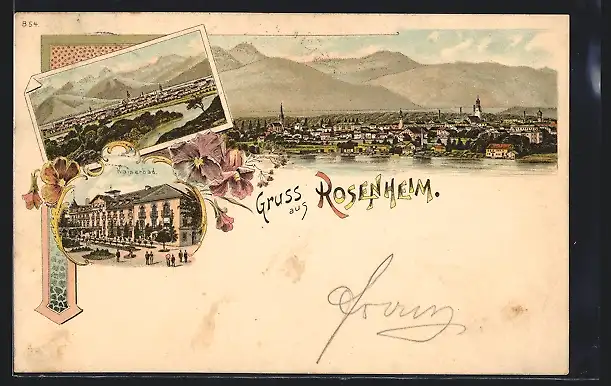 854
Kaiserbad.
Gruss aus Rosenheim.
Franz